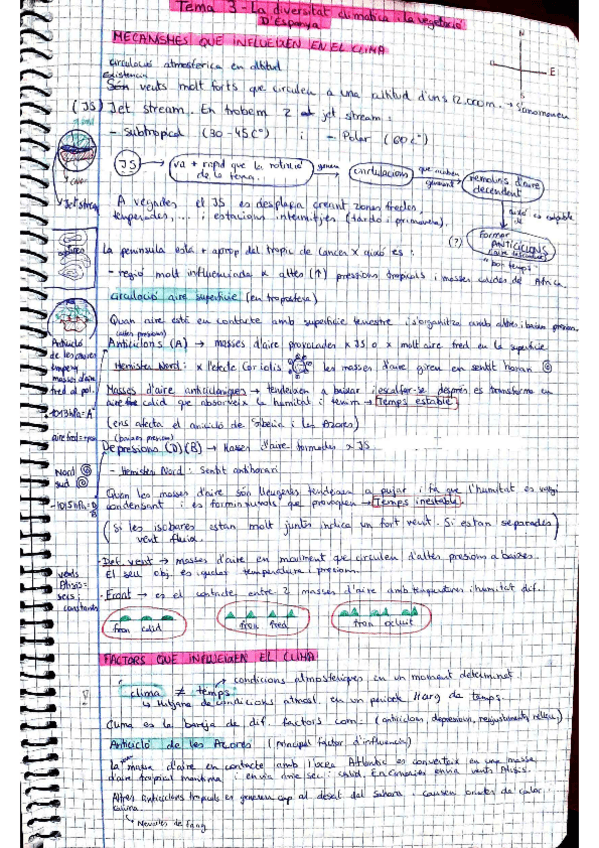 Tema 3 - La diversitat climàtica i la vegetació
D'Espanya
N
E
MECANISMES QUE INFLUEIXEN EN EL CLIMA
circulació atmosfèrica en altitud
Són vents molt forts que circulen a una altitud d'uns 12.000m.
(JS) Jet stream. En trobem 2 jet stream:
- Subtropical (30-45Cº) i - Polar (60Cº)
JS → va + ràpid que la rotació de la terra. → ondulacions → remolins d'aire decendent
Jet stream
A vegades el JS es desplaça creant zones fredes,
temperades,... i estacions intermitjes (tardo i primavera).
(?) Formar ANTICICLONS
"bon temps"
La peninsula esta + aprop del tropic de Cancer x això es:
- regió molt influenciada x altes (↑) pressions tropicals i masses caldes de Africa.
circulació aire superficie (en troposfera)
Quan aire està en contacte amb superficie terrestre s'organitza amb altes i baixes pression.
(altes pressions)
Anticiclons (A) → masses d'aire provocades x JS o x molt aire fred en la superficie
- Hemisferi Nord: x l'efecte Coriolis les masses d'aire giren en sentit horari
Masses d'aire anticicloniques → tendeixen a baixar i escalfar-se després es transforma en
aire calid que absorveix la humitat i tenim → Temps estable.
1013hPa = A
(ens afecta el anticicló de Siberia i les Azores)
(baixes pressions)
Depressions (D)(B) → Masses d'aire formades x JS
Nord
sud
- Hemisferi Nord: Sentit antihorari
Quan les masses d'aire són lleugeres tendeixen a pujar i fa que l'humitat es vagi
condensant i es formin núvols que provoquen → Temps inestable.
(si les isobares estan molt juntes indica un fort vent. Si estan separades
vent fluix.)
- Def. vent → masses d'aire en moviment que circulen d'altes pressions a baixes.
El seu obj. es igualar temperatura i pressions.
vents
Alisis =
secs i
constants
- Front → es el contacte entre 2 masses d'aire amb temperatures i humitat dif.
front calid
front fred
front ocluit
FACTORS QUE INFLUEIXEN EL CLIMA
condicions atmosfèriques en un moment determinat.
clima ≠ temps
Mitjana de condicions atmosf. en un periode llarg de temps.
Clima es la barreja de dif. factors com: (anticiclons, depressions, relleu)
Anticicló de les Azores (Principal factor d'influencia)
La massa d'aire en contacte amb l'oceà Atlantic es converteix en una massa
d'aire tropical maritima i envia aire sec i calid. En Canaries envia vents Alisis.
Altres anticiclons tropicals es generen cap al desert del Sahara i causen onades de calor.
calima